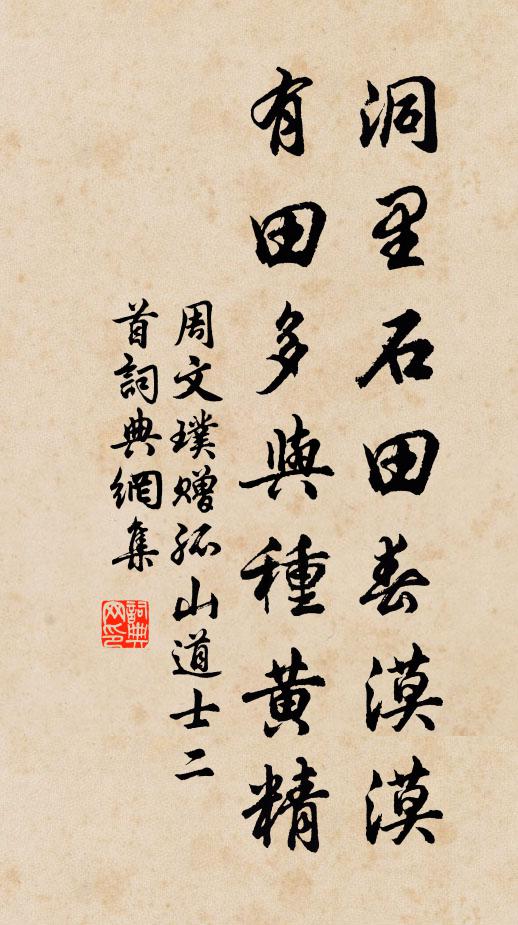 洞里石田春漠漠
有田多與種黃精
周文璞贈孤山道士二
首詞典網集
詞典網印